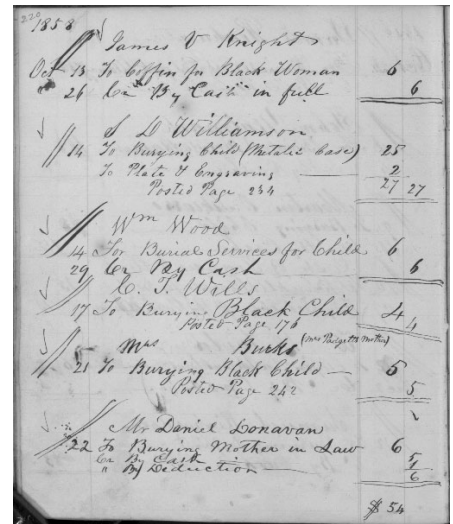 220
1858
James V Knight
Oct 13 To Coffin for Black Woman 6
" 26 Cr By Cash in full 6
S D Williamson
14 To Burying Child (Metalic Case) 25
To Plate & Engraving 2
Posted Page 234 27 27
Wm Wood
14 For Burial Services for Child 6
29 Cr By Cash 6
C. T. Wills
17 To Burying Black Child 4
Posted Page 176 4
Mrs Burks (Mrs Padgetts Mother)
21 To Burying Black Child 5
Posted Page 242 5
Mr Daniel Donavan
22 To Burying Mother in Law 6
Cr By Cash 5
" By Deduction 1
6
$ 54